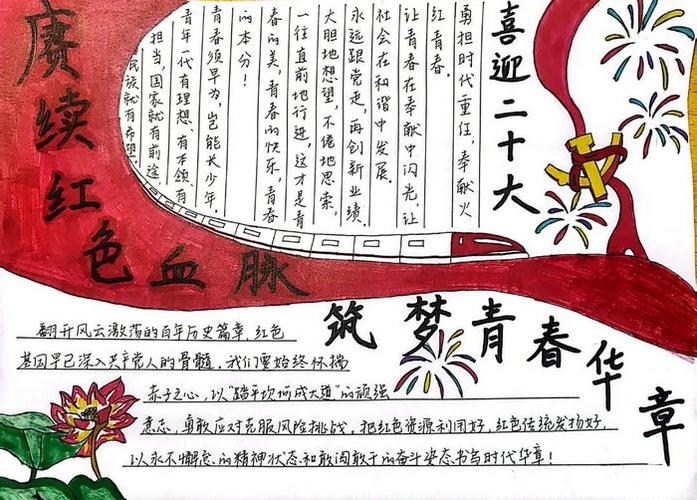 赓续红色血脉
喜迎二十大
勇担时代重任，奉献火
红青春。
让青春在奉献中闪光，让
社会在和谐中发展。
永远跟党走，再创新业绩。
大胆地想望，不倦地思索，
一往直前地行进，这才是青
春的美，青春的快乐，青春
的本分！
青春须早为，岂能长少年。
青年一代有理想、有本领、有
担当，国家就有前途
民族就有希望。
筑梦青春华章
翻开风云激荡的百年历史篇章，红色
基因早已深入共产党人的骨髓，我们要始终怀揣
赤子之心，以“踏平坎坷成大道”的顽强
意志，勇敢应对克服风险挑战。把红色资源利用好，红色传统发扬好，
以永不懈怠的精神状态和敢闯敢干的奋斗姿态书写时代华章！